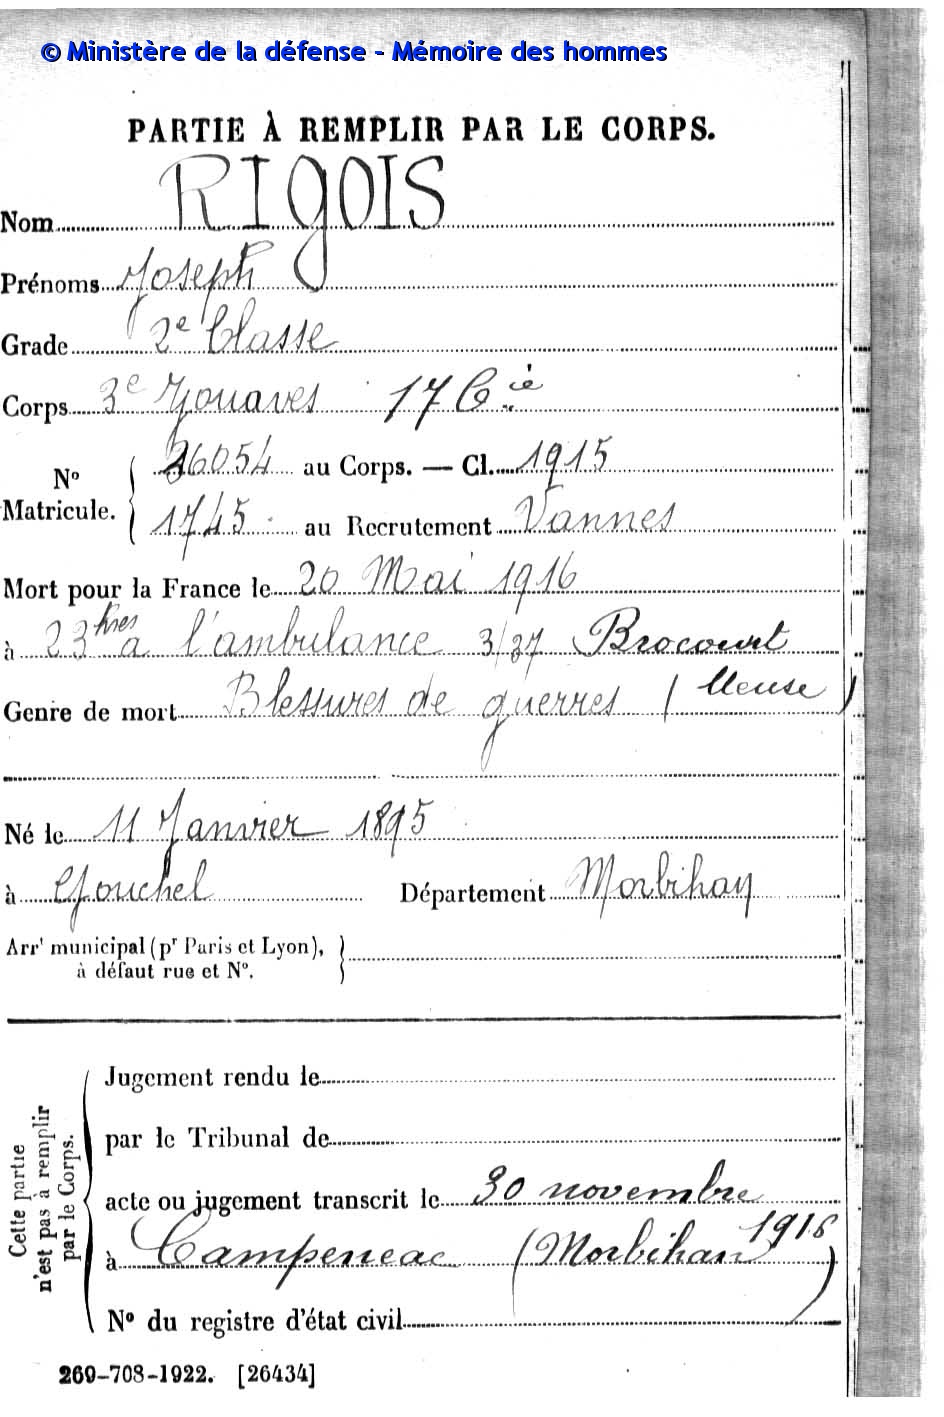 © Ministère de la défense - Mémoire des hommes
PARTIE À REMPLIR PAR LE CORPS.
Nom RIGOIS
Prénoms Joseph
Grade 2e Classe
Corps 3e Zouaves 17 Cie
No Matricule. 26054 au Corps. — Cl. 1915
1745 au Recrutement Vannes
Mort pour la France le 20 Mai 1916
à 23 hres à l'ambulance 3/37 Brocourt
Genre de mort Blessures de guerres (Meuse)
Né le 11 Janvier 1895
à Département Morbihan
Arrt municipal (pr Paris et Lyon),
à défaut rue et No.
Cette partie n'est pas à remplir par le Corps.
Jugement rendu le
par le Tribunal de
acte ou jugement transcrit le 30 novembre 1916
à Campeneac (Morbihan)
No du registre d'état civil
269-708-1922. [26434]